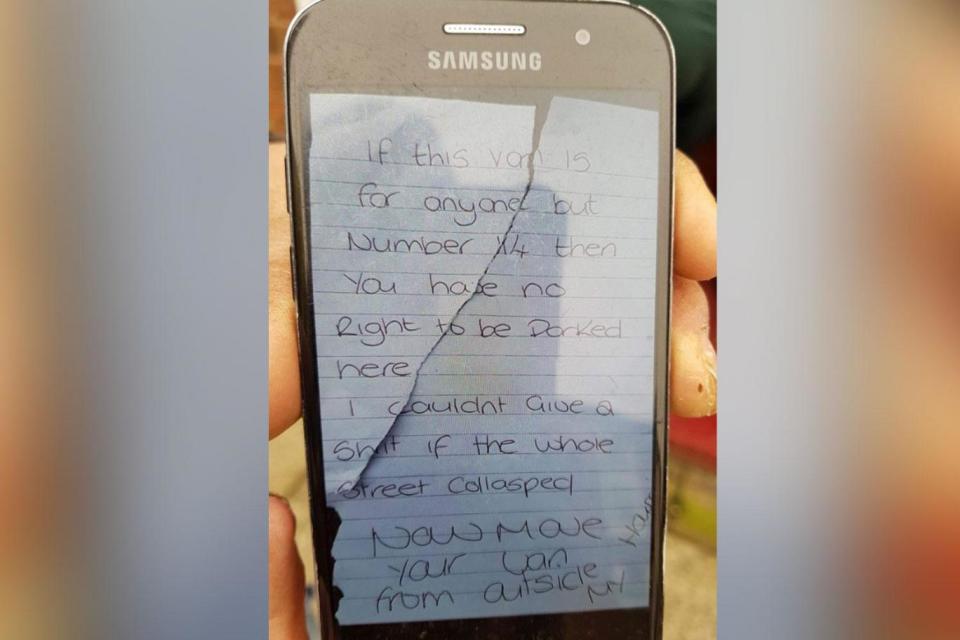 SAMSUNG
If this van is
for anyone but
Number 14 then
you have no
Right to be Parked
here
I couldnt Give a
Shit if the whole
Street Collasped
Now Move
your van
from outside
My